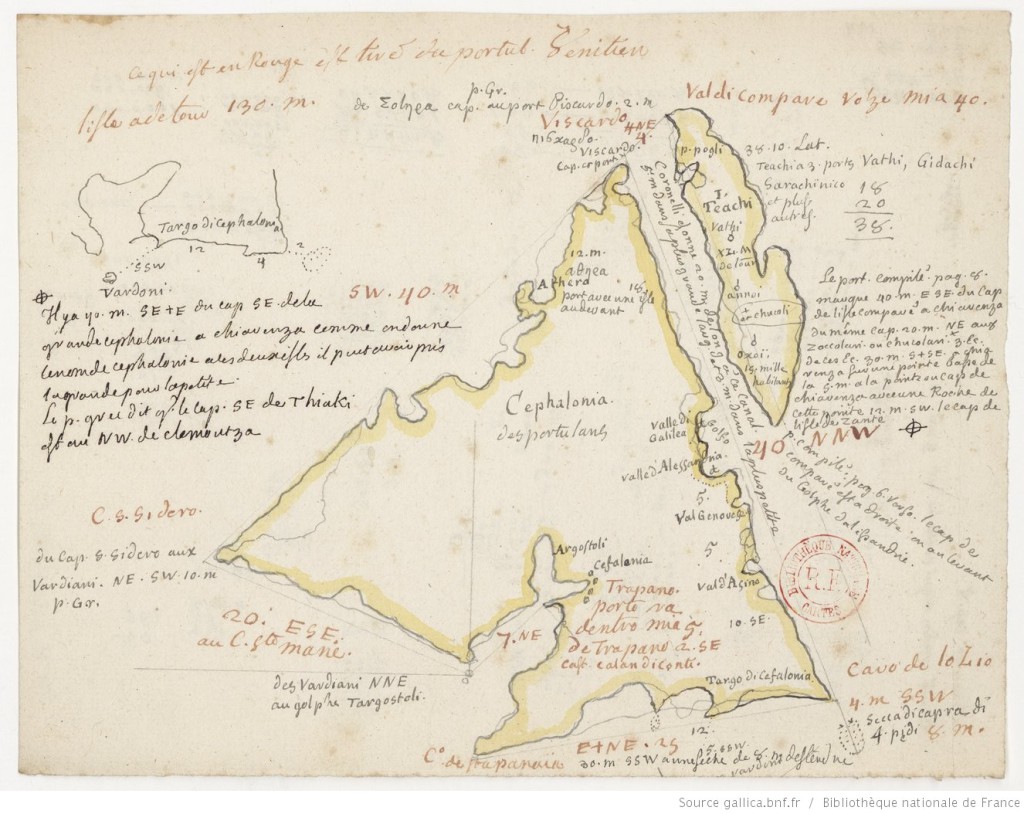 ce qui est en Rouge est tiré du portul. Vénitien
l'isle a de tour 130. m.
p. Gr.
cap. au port Viscardo. 2. m
Val di compare volze mia 40.
VISCARDO
4 NE
4.
Viscardo.
Cap. et port
p. pogli
38. 10. Lat.
Teachi a 3. ports Vathi, Gidachi
Sarachinico
et plus
autres.
18
20
38.
I.
Teachi
Vathi
XL. M
de tour
annoi
oxoii.
15. mille
habitans
Coronelli donne 20. m. de long a ce canal.
5. m dans sa plus grande larg. et 3. m. dans la plus petite
Targo di Cephalonia
12
4
2
SSW
Vardoni.
12. m.
Atherd
port avec une isle
au devant
SW. 40. m
Il y a 40. m. SE+E du cap SE de la
grande cephalonie a chiavenza comme on donne
le nom de cephalonie a les deux isles il peut avoir pris
la grande pour la petite.
Le p. grec dit q. le cap. SE de Thiaki
est au NW. de clemoutza
Le port. compilé. pag. 8.
marque 40 m. E SE du Cap
de l'isle compare a chiavenza
du même cap. 20. m. NE aux
Zoccolari. ou chucolari. 3. Ec.
de ces Ec. 30. m. S+SE. a chia
venza sur une pointe basse de
la 5. m a la pointe ou cap de
chiavenza avec une Roche de
cette pointe 12. m. SW. le cap de
l'isle de Zante
Cephalonia.
des portulans
valle di
Galilea
golfo
valle d'Alessandria.
5.
Val Genovese
5
Val d'Asino
10. SE.
40 NNW
p. compilé. pag 6. verso. le cap de
compare est a droite ou au levant
du Golphe d'alessandrie.
C. S. Sidero.
du Cap. S. Sidero aux
Vardiani. NE. SW. 10. m
p. Gr.
Argostoli
Cefalonia
Trapano.
porto va
dentro mia 5,
de Trapano 2. SE
cast. calandiconti.
20. ESE.
au C. Ste marie.
7. NE
des Vardiani NNE
au golphe Targostoli.
BIBLIOTHÈQUE NATIONALE
R.F.
CARTES
Targo di Cefalonia
Cavo de lo Zio
4. m SSW
Secca di capra di
4. piedi 8. m.
12.
5. SSW
C. de sta panaia
E+NE. 25
30. m SSW a une seche de 8.
Source gallica.bnf.fr / Bibliothèque nationale de France